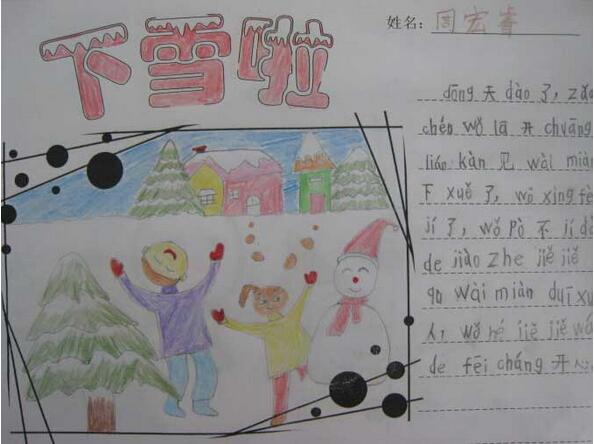 下雪啦
姓名：周宏睿
dōng 天 dào 了，zǎo
chén wǒ lā 开 chuāng
lián kàn 见 wài miàn
下 xuě 了，wǒ xīng fèn
jí 了，wǒ pò 不 jí dài
de jiào zhe jiě jiě
qu wài miàn duī xu
人，wǒ hé jiě jiě wá
de fēi cháng 开 心